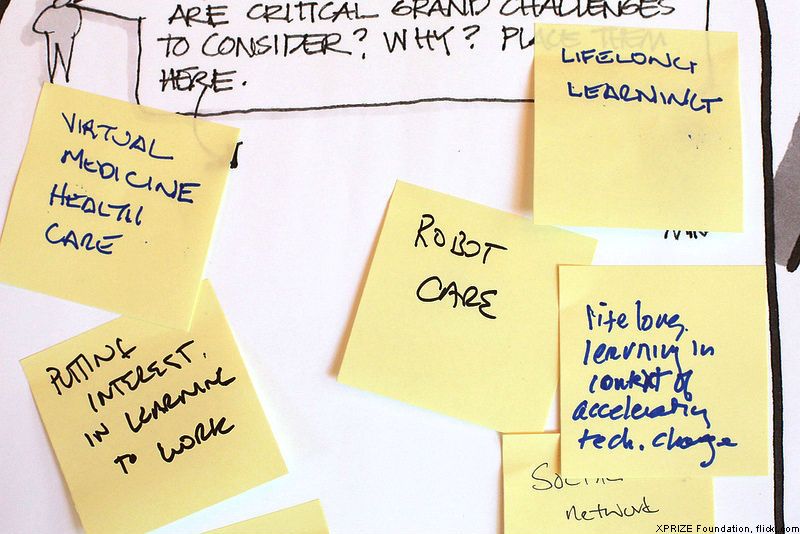 ARE CRITICAL GRAND CHALLENGES
TO CONSIDER? WHY? PL THEM
HERE.
LIFELONG
LEARNING
VIRTUAL
MEDICINE
HEALTH
CARE
ROBOT
CARE
lifelong
learning in
context of
accelerating
tech. change
PUTTING
INTEREST.
IN LEARNING
TO WORK
SOCIAL
network
XPRIZE Foundation, flickr.com